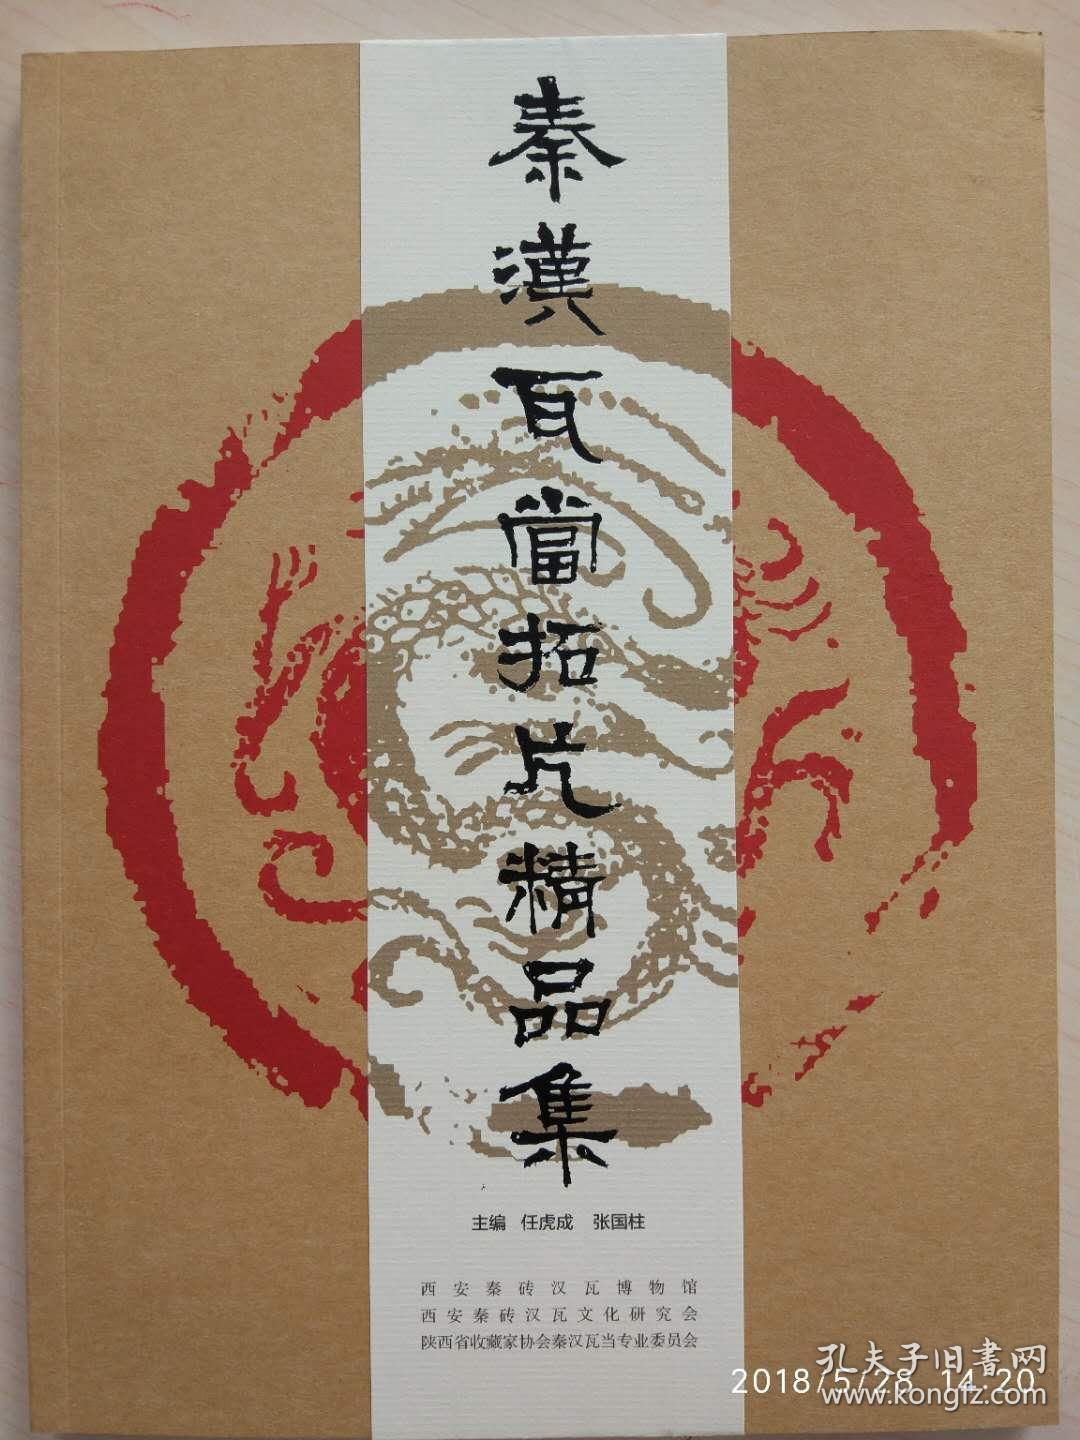 秦漢瓦當拓片精品集
主编 任虎成 张国柱
西安秦砖汉瓦博物馆
西安秦砖汉瓦文化研究会
陕西省收藏家协会秦汉瓦当专业委员会
孔夫子旧書网
2018/5/28 14:20
www.kongfz.com